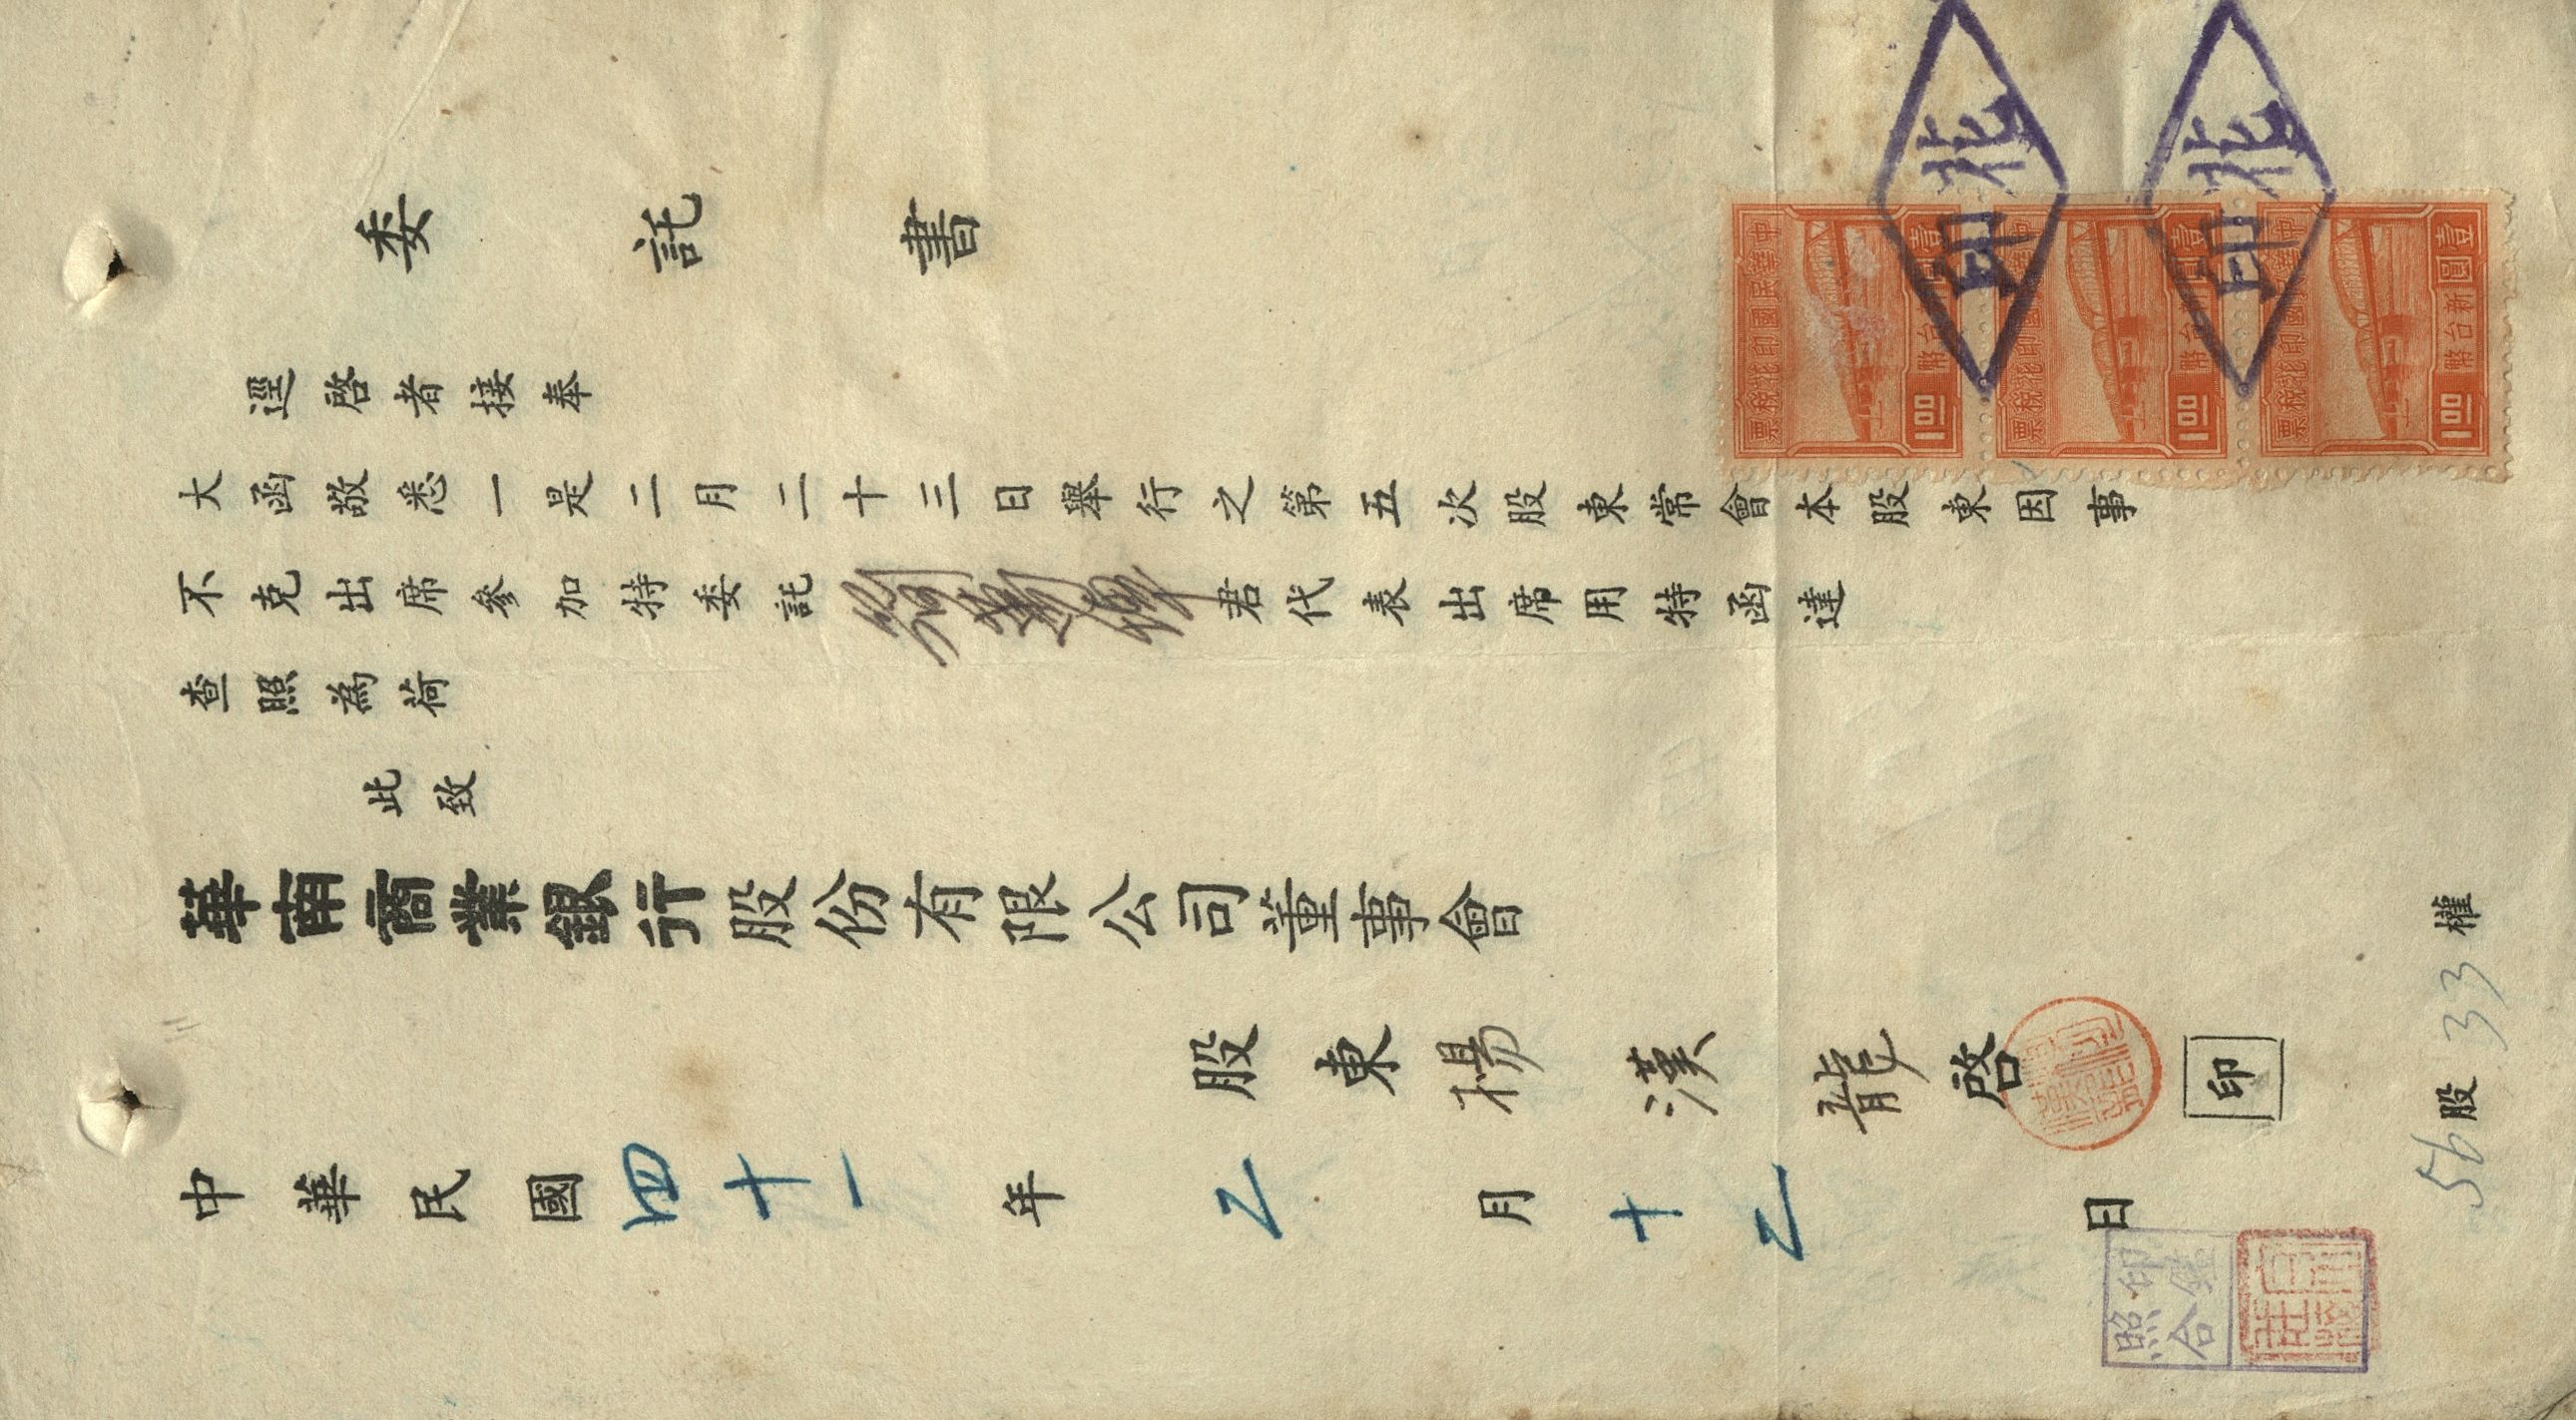 委託書
中華民國印花稅票
壹圓 新台幣 1.00
中華民國印花稅票
壹圓 新台幣 1.00
中華民國印花稅票
壹圓 新台幣 1.00
北印
北印
逕啓者接奉
大函敬悉一是二月二十三日舉行之第五次股東常會本股東因事
不克出席參加特委託 君代表出席用特函達
查照為荷
此致
華南商業銀行股份有限公司董事會
股東楊漢龍啓 印
中華民國四十一年二月十二日
56股33權
印鑑照合